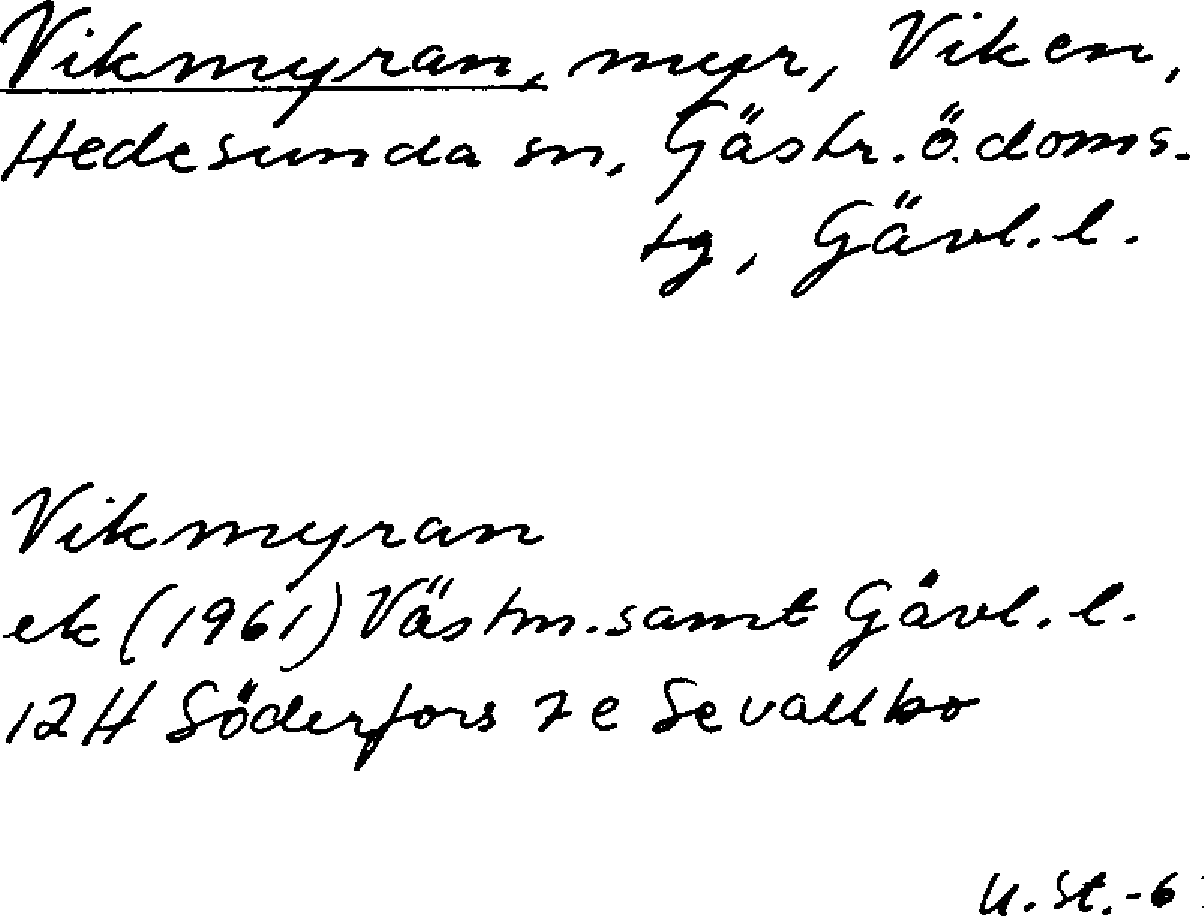 Vikmyran, myr, Viken,
Hedesunda sn, Gästr. ö. doms.
tg, Gävl. l.
Vikmyran
ek (1961) Västm. samt Gävl. l.
12H Söderfors 7e Sevallbo
U. St.-6